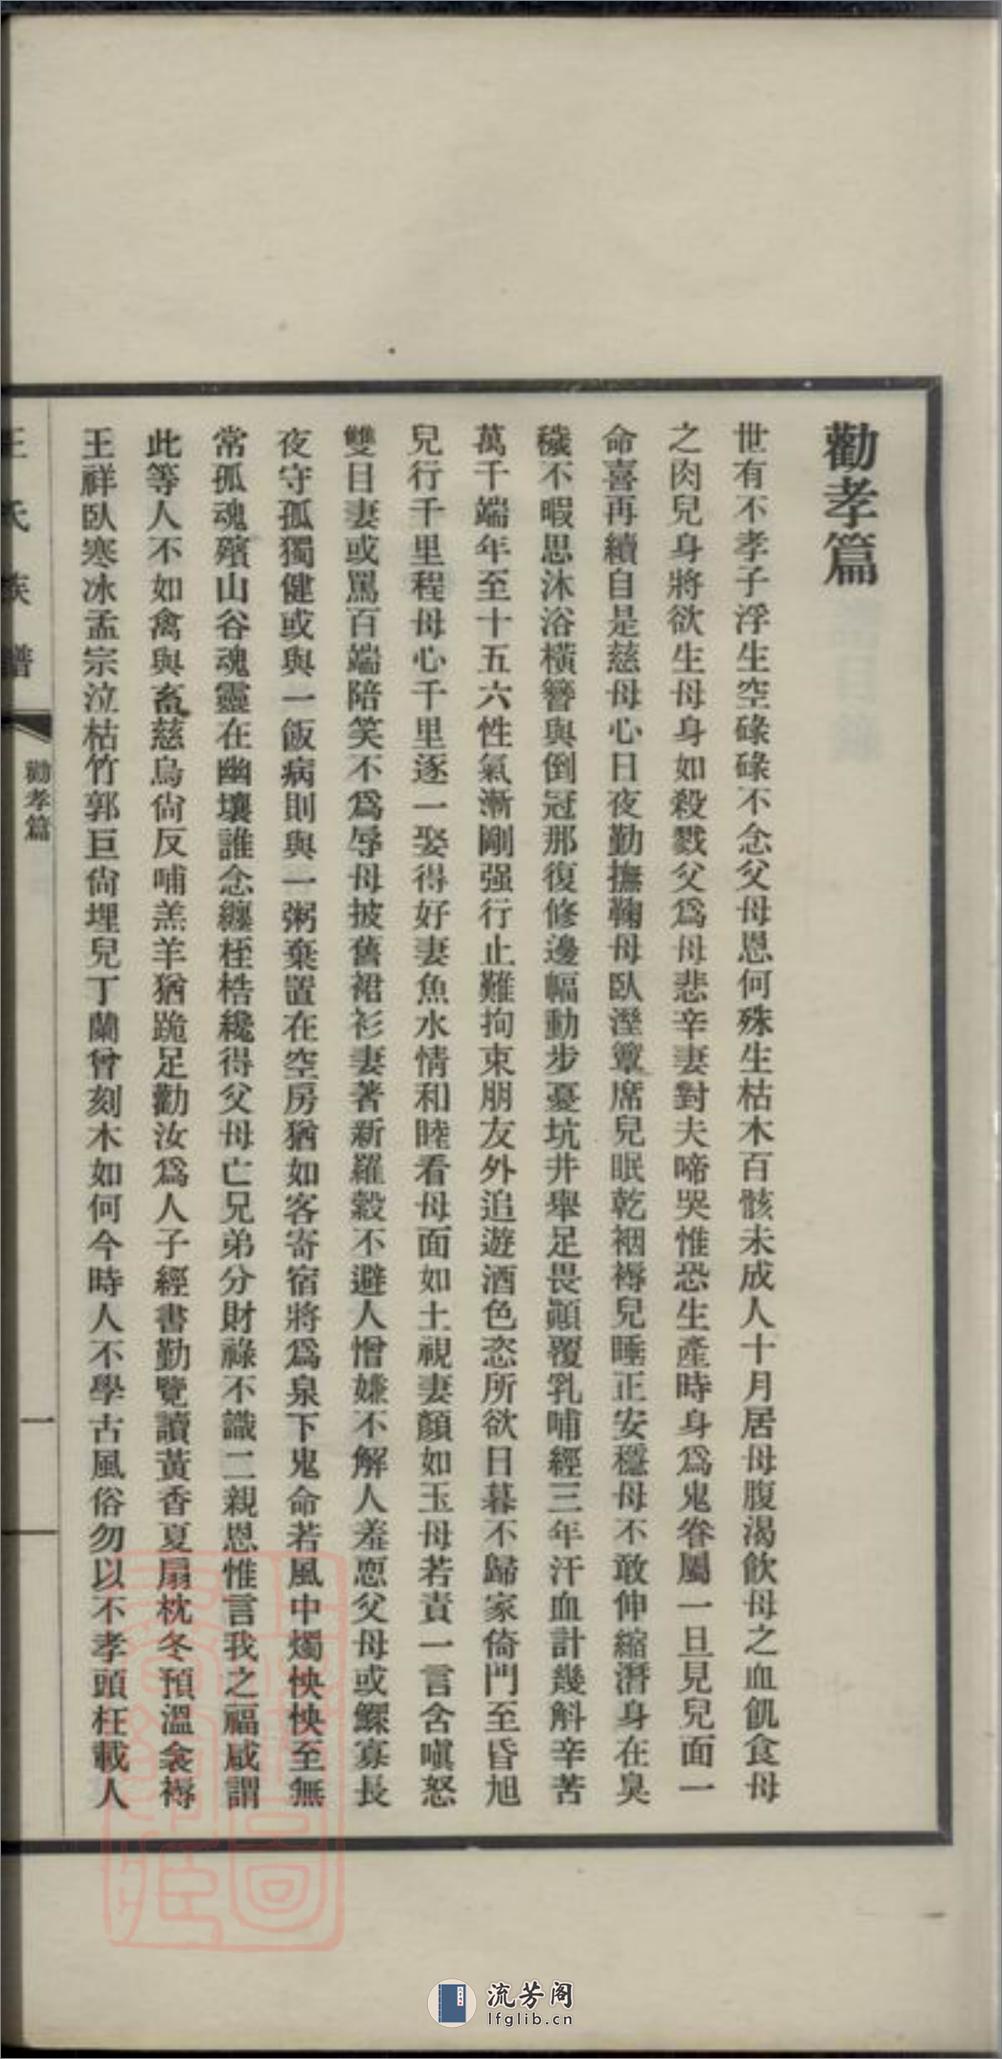 勸孝篇
世有不孝子浮生空碌碌不念父母恩何殊生枯木百骸未成人十月居母腹渴飲母之血飢食母
之肉兒身將欲生母身如殺戮父爲母悲辛妻對夫啼哭惟恐生產時身爲鬼眷屬一旦見兒面一
命喜再續自是慈母心日夜勤撫鞠母臥溼簟席兒眠乾裀褥兒睡正安穩母不敢伸縮潛身在臭
穢不暇思沐浴橫簪與倒冠那復修邊幅動步憂坑井舉足畏顚覆乳哺經三年汗血計幾斛辛苦
萬千端年至十五六性氣漸剛强行止難拘束朋友外追遊酒色恣所欲日暮不歸家倚門至昏旭
兒行千里程母心千里逐一娶得好妻魚水情和睦看母面如土視妻顏如玉母若責一言含嗔怒
雙目妻或罵百端陪笑不爲辱母披舊裙衫妻著新羅縠不避人憎嫌不解人羞恧父母或鰥寡長
夜守孤獨健或與一飯病則與一粥棄置在空房猶如客寄宿將爲泉下鬼命若風中燭怏怏至無
常孤魂殯山谷魂靈在幽壤誰念纏桎梏纔得父母亡兄弟分財祿不識二親恩惟言我之福咸謂
此等人不如禽與畜慈烏尙反哺羔羊猶跪足勸汝爲人子經書勤覽讀黃香夏扇枕冬預溫衾褥
王祥臥寒冰孟宗泣枯竹郭巨尙埋兒丁蘭曾刻木如何今時人不學古風俗勿以不孝頭枉載人
王氏族譜
勸孝篇
一
流芳阁
lfglib.cn